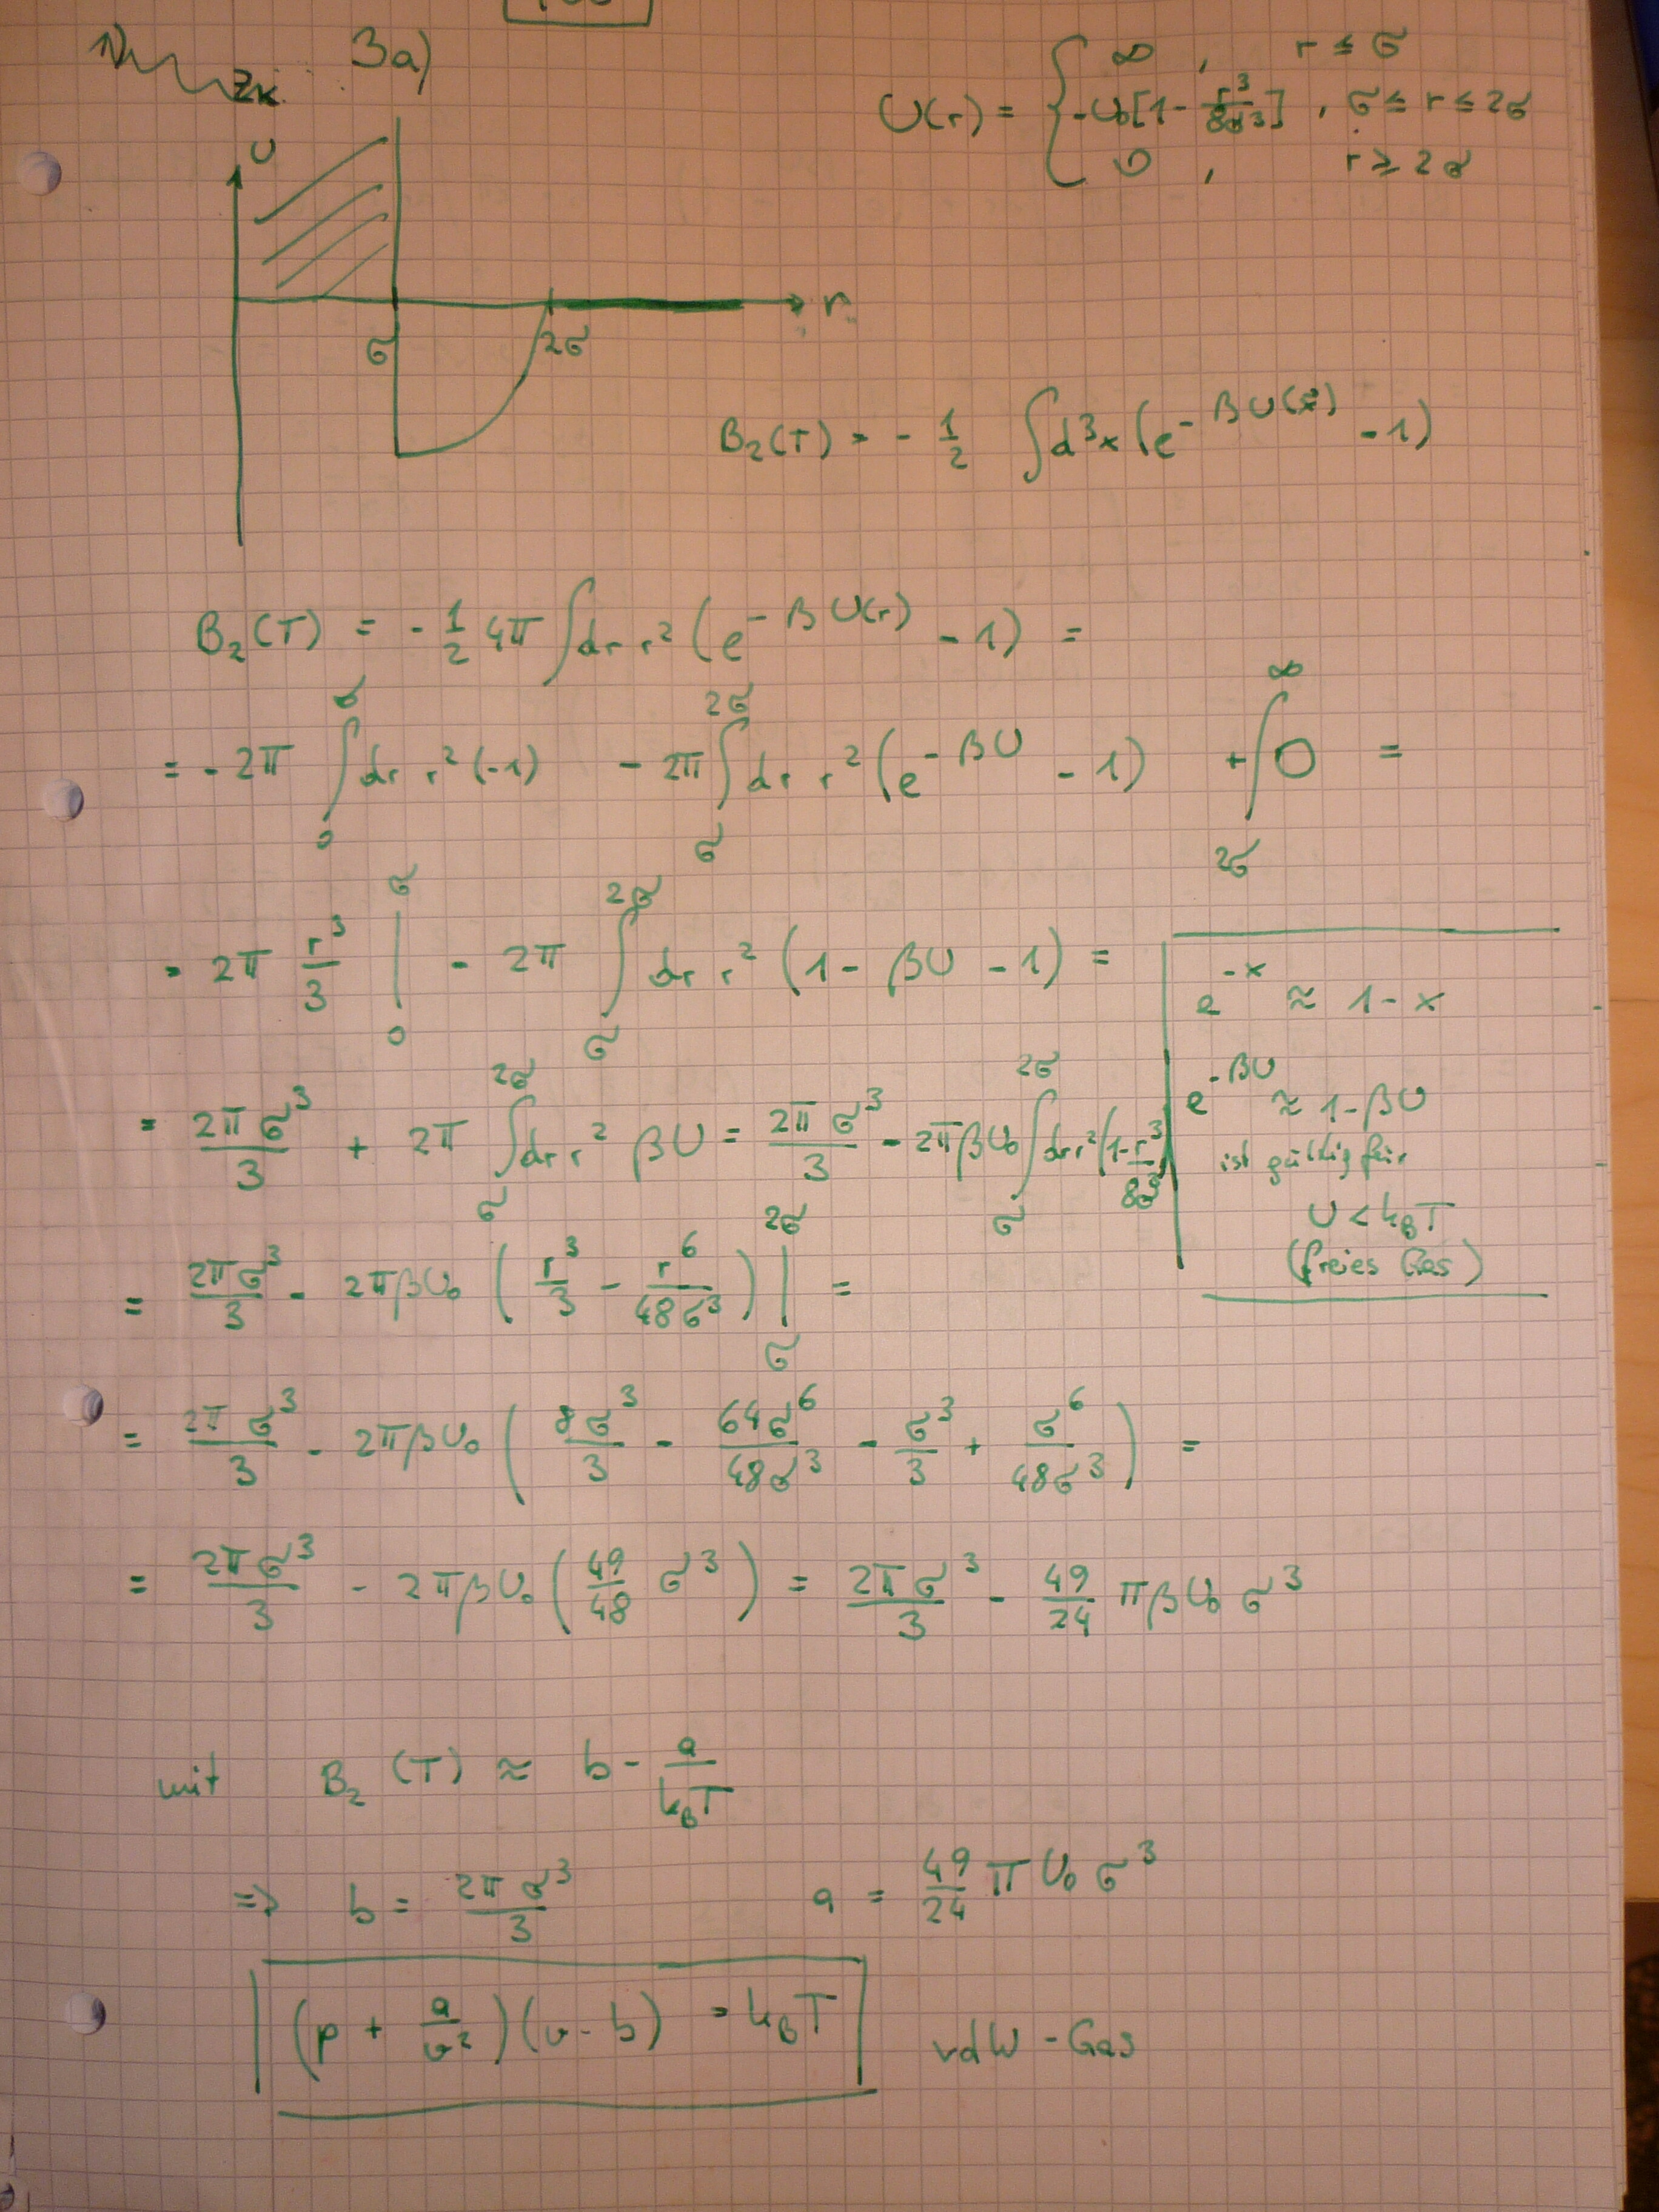 3a)
U(r) = { ∞ , r ≤ σ
-U₀[1 - r³/8σ³] , σ ≤ r ≤ 2σ
0 , r ≥ 2σ
U
r
σ 2σ
B₂(T) = - 1/2 ∫d³x (e^(-βU(x)) - 1)
B₂(T) = - 1/2 4π ∫dr r² (e^(-βU(r)) - 1) =
= - 2π ∫₀^σ dr r² (-1) - 2π ∫_σ^2σ dr r² (e^(-βU) - 1) + ∫_2σ^∞ 0 =
= 2π r³/3 |₀^σ - 2π ∫_σ^2σ dr r² (1 - βU - 1) =
e^(-x) ≈ 1 - x
e^(-βU) ≈ 1 - βU
ist gültig für
U < k_BT
(freies Gas)
= 2πσ³/3 + 2π ∫_σ^2σ dr r² βU = 2πσ³/3 - 2πβU₀ ∫_σ^2σ dr r² (1 - r³/8σ³)
= 2πσ³/3 - 2πβU₀ (r³/3 - r⁶/48σ³) |_σ^2σ =
= 2πσ³/3 - 2πβU₀ (8σ³/3 - 64σ⁶/48σ³ - σ³/3 + σ⁶/48σ³) =
= 2πσ³/3 - 2πβU₀ (49/48 σ³) = 2πσ³/3 - 49/24 πβU₀σ³
mit B₂(T) ≈ b - a/k_BT
=> b = 2πσ³/3 a = 49/24 πU₀σ³
(p + a/v²)(v - b) = k_BT vdW-Gas